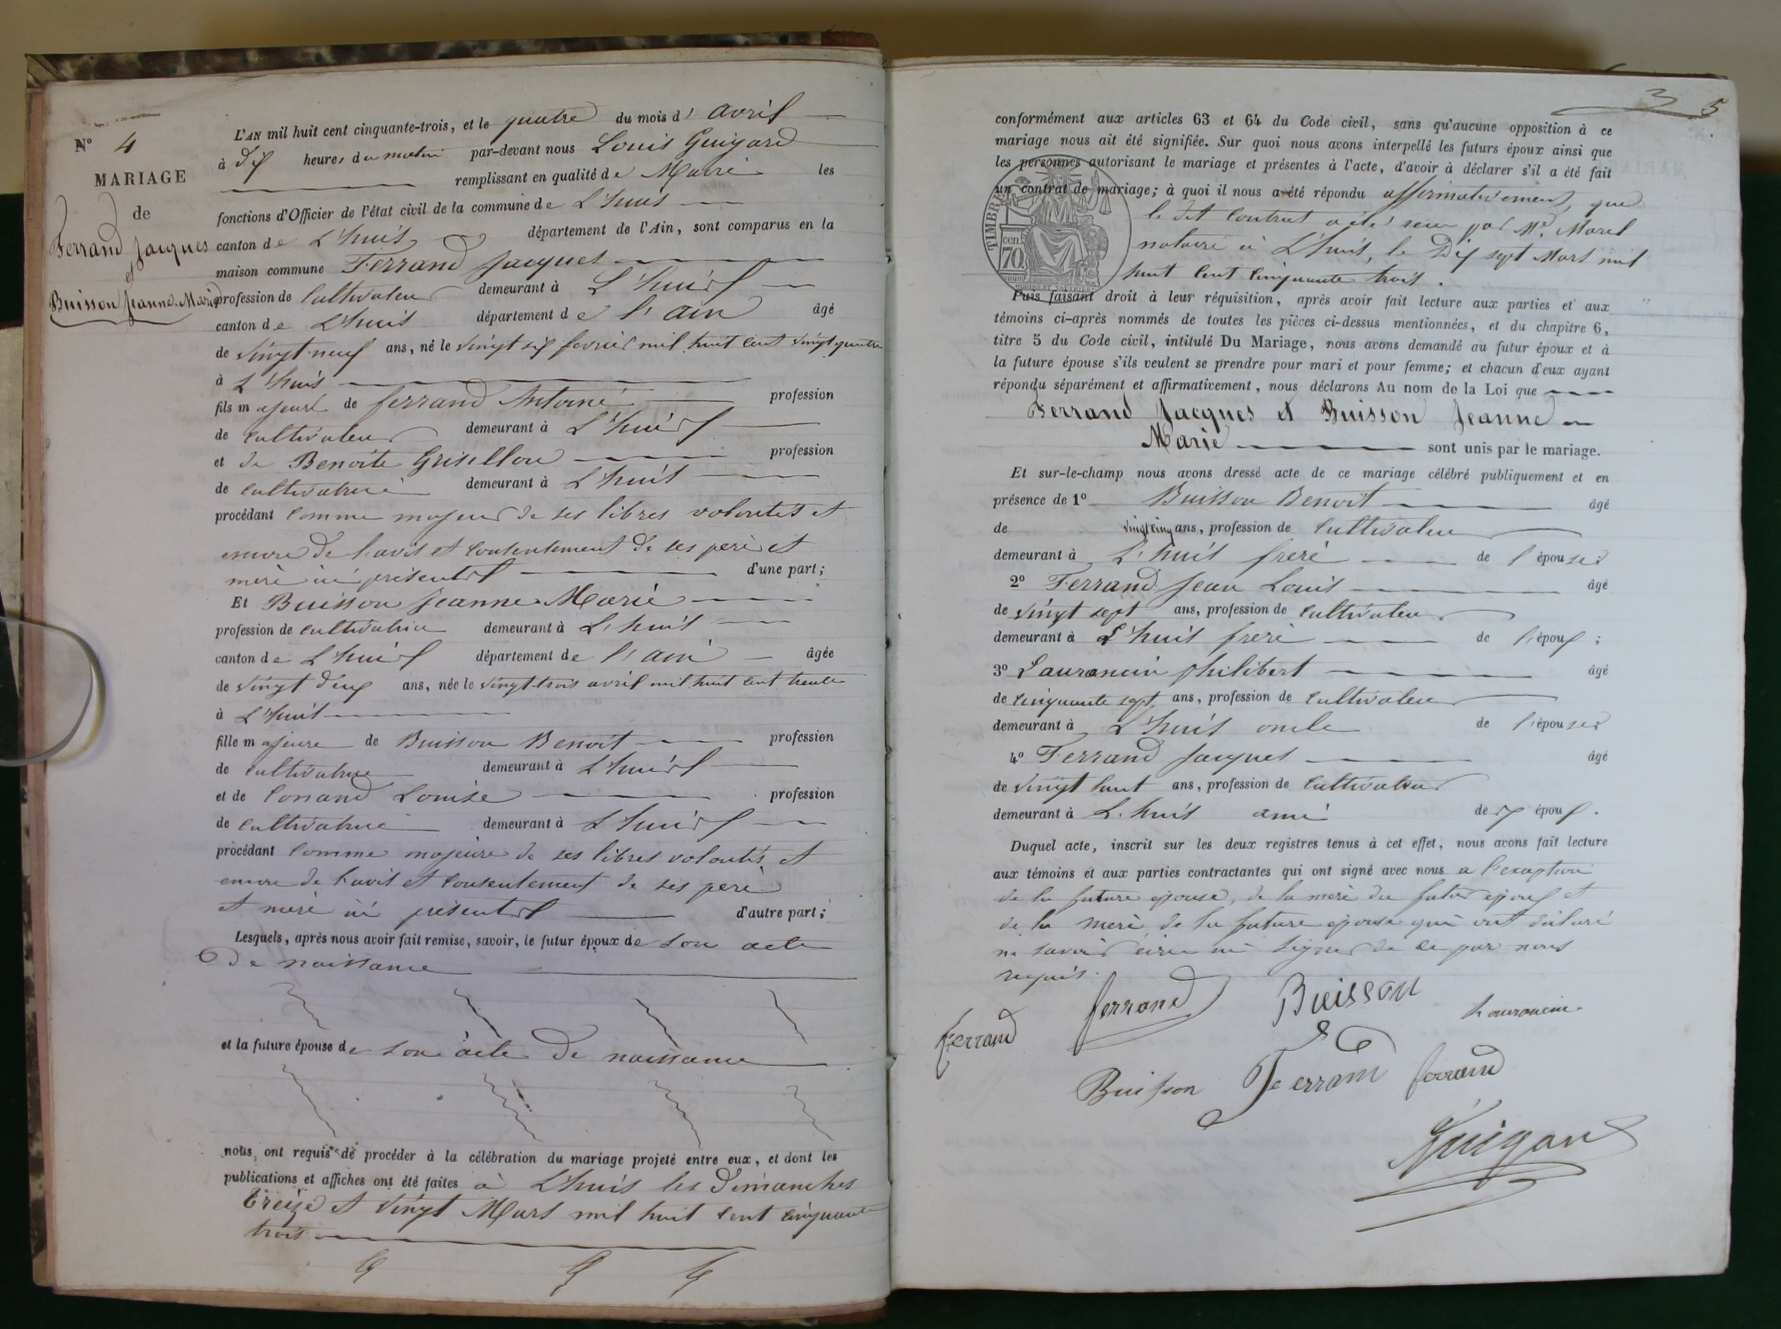 N° 4
MARIAGE
de
Ferrand Jacques
et
Buisson Jeanne-Marie
L'AN mil huit cent cinquante-trois, et le quatre du mois d'avril
à dix heures du matin par-devant nous Louis Guigard
remplissant en qualité de Maire les
fonctions d'Officier de l'état civil de la commune de L'huis
canton de L'huis département de l'Ain, sont comparus en la
maison commune Ferrand Jacques
profession de Cultivateur demeurant à L'huis
canton de L'huis département de l'ain âgé
de vingt neuf ans, né le vingt six fevrier mil huit cent vingt quatre
à L'huis
fils majeur de ferrand Antoine profession
de cultivateur demeurant à L'huis
et de Benoite Grisillou profession
de cultivatrice demeurant à L'huis
procédant comme majeur de ses libres volontés et
encore de l'avis et consentement de ses père et
mère ici présents d'une part;
Et Buisson Jeanne-Marie
profession de cultivatrice demeurant à L'huis
canton de L'huis département de l'ain âgée
de vingt deux ans, née le vingt-trois avril mil huit cent trente
à L'huis
fille majeure de Buisson Benoit profession
de cultivateur demeurant à L'huis
et de Conand Louise profession
de cultivatrice demeurant à L'huis
procédant comme majeure de ses libres volontés et
encore de l'avis et consentement de ses père
et mère ici présents d'autre part;
Lesquels, après nous avoir fait remise, savoir, le futur époux de son acte
de naissance
et la future épouse de son acte de naissance
nous ont requis de procéder à la célébration du mariage projeté entre eux, et dont les
publications et affiches ont été faites à L'huis les dimanches
treize et vingt Mars mil huit cent cinquante
trois
3 5
conformément aux articles 63 et 64 du Code civil, sans qu'aucune opposition à ce
mariage nous ait été signifiée. Sur quoi nous avons interpellé les futurs époux ainsi que
les personnes autorisant le mariage et présentes à l'acte, d'avoir à déclarer s'il a été fait
un contrat de mariage; à quoi il nous a été répondu affirmativement, que
le dit contrat a été reçu par Me Morel
notaire à L'huis, le Dix sept Mars mil
huit cent cinquante trois.
TIMBRE
cen. 70
Puis faisant droit à leur réquisition, après avoir fait lecture aux parties et aux
témoins ci-après nommés de toutes les pièces ci-dessus mentionnées, et du chapitre 6,
titre 5 du Code civil, intitulé Du Mariage, nous avons demandé au futur époux et à
la future épouse s'ils veulent se prendre pour mari et pour femme; et chacun d'eux ayant
répondu séparément et affirmativement, nous déclarons Au nom de la Loi que
Ferrand Jacques et Buisson Jeanne
Marie sont unis par le mariage.
Et sur-le-champ nous avons dressé acte de ce mariage célébré publiquement et en
présence de 1° Buisson Benoit âgé
de vingt cinq ans, profession de Cultivateur
demeurant à L'huis frere de l'épouse
2° Ferrand Jean Louis âgé
de vingt sept ans, profession de cultivateur
demeurant à L'huis frere de l'époux;
3° Laurancin philibert âgé
de Cinquante sept ans, profession de Cultivateur
demeurant à L'huis oncle de l'épouse
4° Ferrand Jacques âgé
de vingt huit ans, profession de Cultivateur
demeurant à L'huis ami des époux.
Duquel acte, inscrit sur les deux registres tenus à cet effet, nous avons fait lecture
aux témoins et aux parties contractantes qui ont signé avec nous a l'exception
de la future epouse, de la mère du futur epoux et
de la mere de la future epouse qui ont déclaré
ne savoir écrire ni signer de ce par nous
requis.
ferrand Buisson Laurancin
Ferrand
Buisson Ferrand ferrand
Guigard